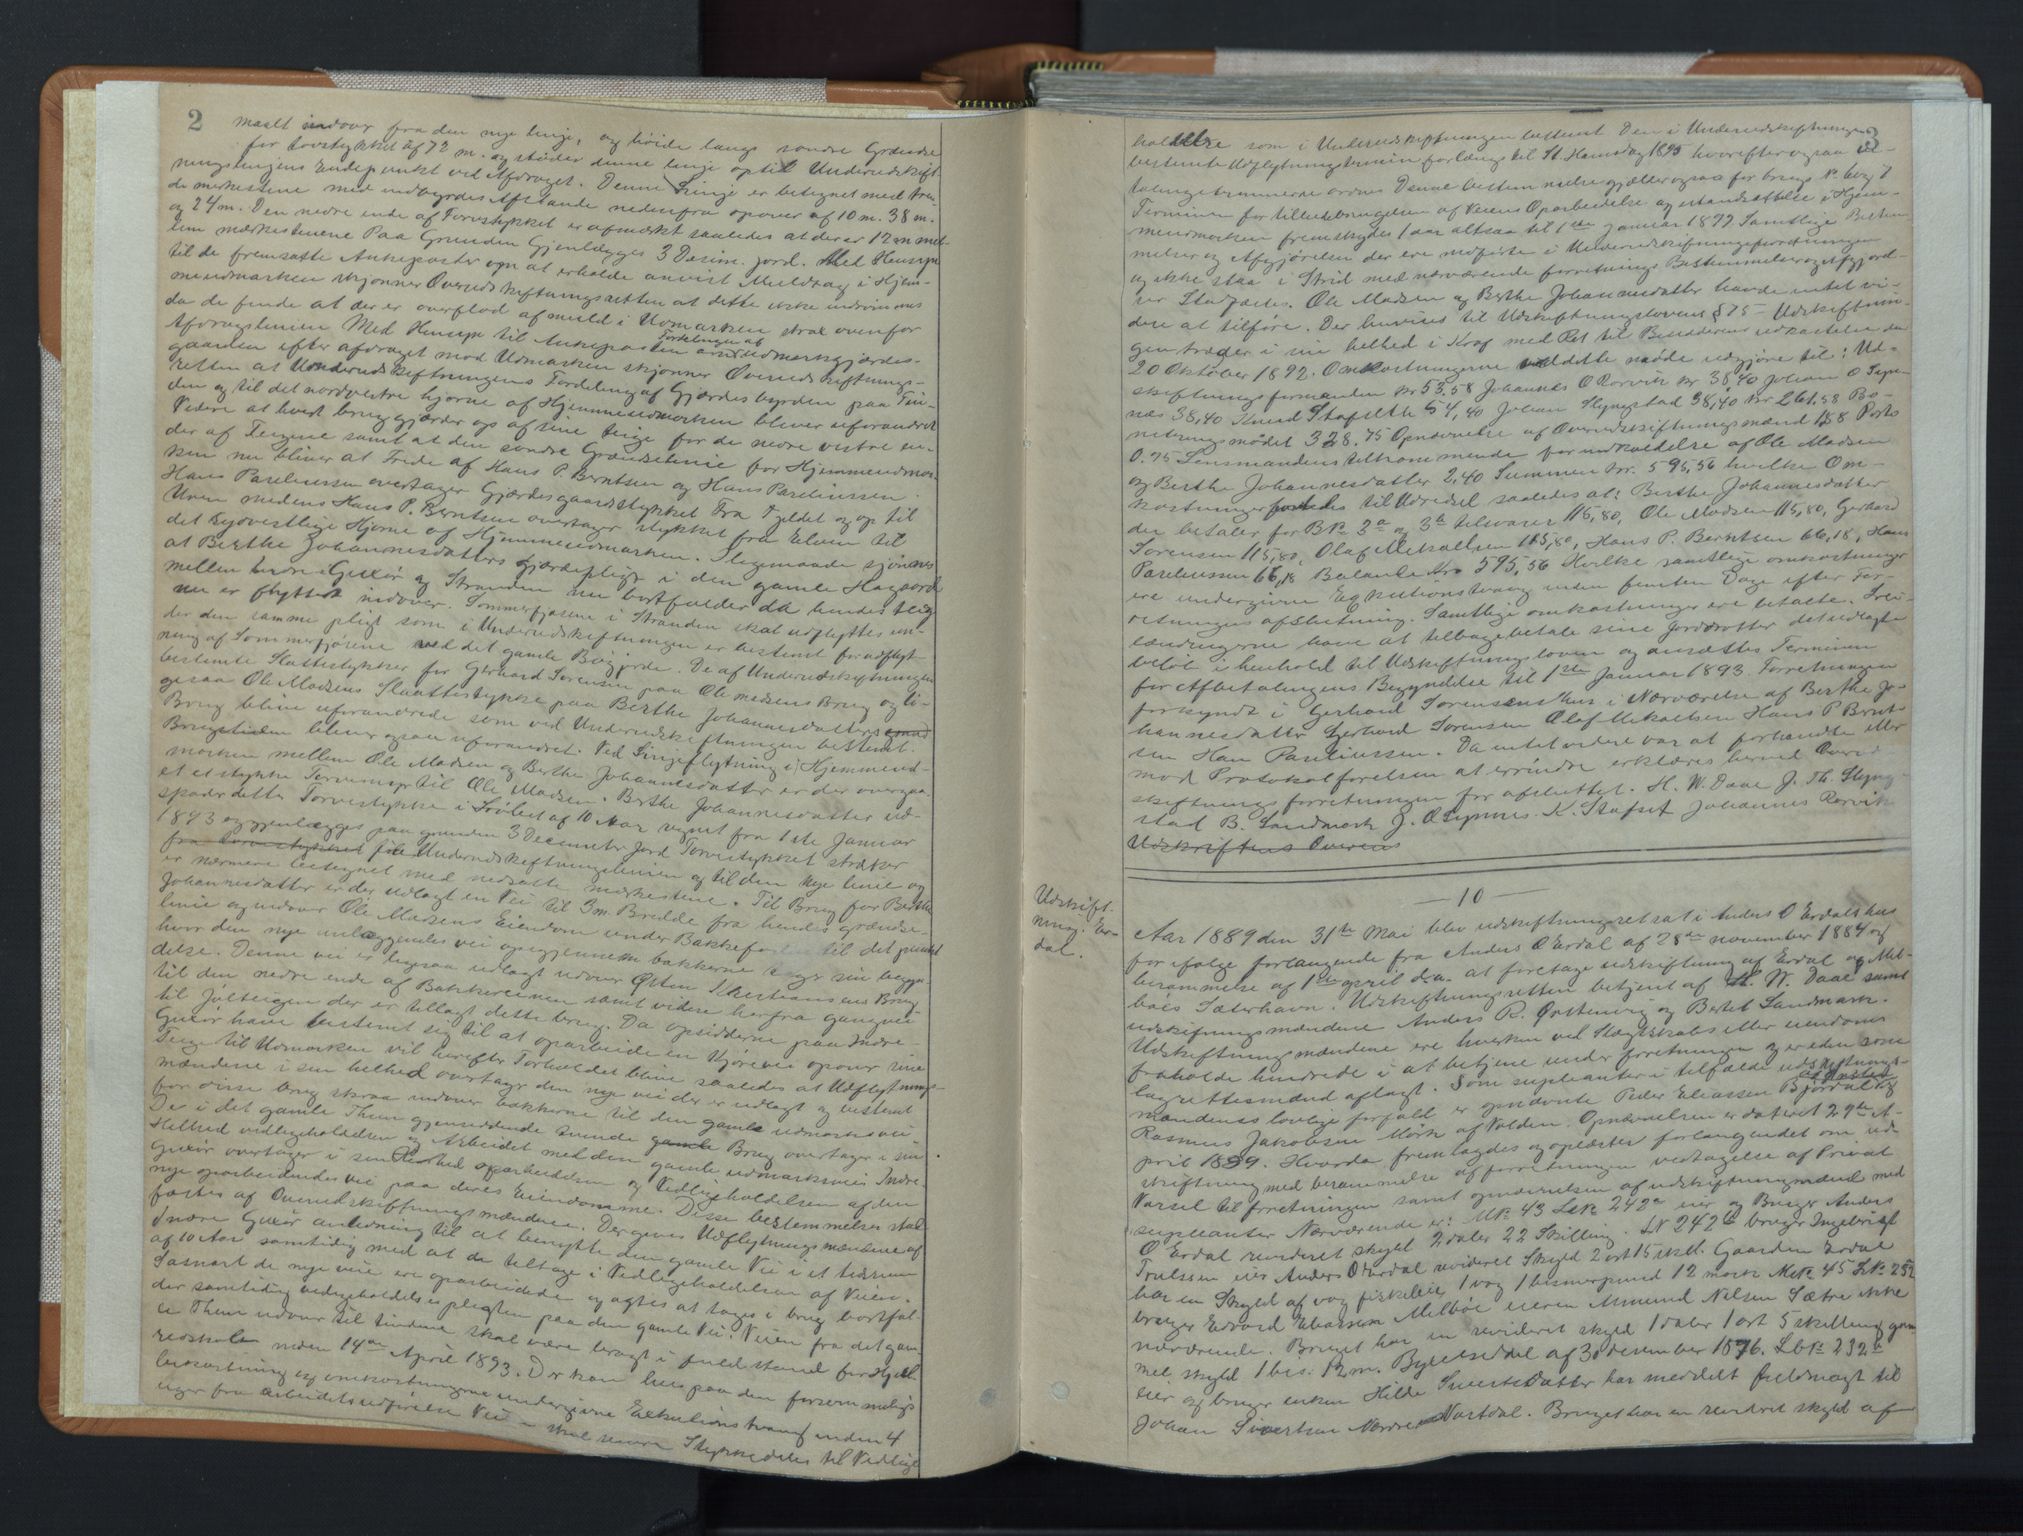 2
maalt indover fra den nye linje, og høide langs søndre Grændse
for tovstykket af 72 m. og støder denne linje op til Underudskift-
ningslinjens Endepunkt ved Afdraget. Denne Linje er betegnet med tven-
de merkestene med indbyrdes Afstande nedenfra opover af 10 m. 38 m.
og 24 m. Den nedre ende af Torvstykket er afmerkt saaledes at der er 12 m mel-
lem mærkestenene Paa Grunden Gjenlægges 3 Desim. jord. Med Hensyn
til de fremsatte Ankeposter om at erholde anvist Muldtag i Hjem-
meudmarken skjønner Overudskiftningsretten at dette ikke indrømmes
da de finde at der er overflod af muld i Udmarken strax ovenfor
Afdragslinien Med Hensyn til Ankeposten Fordelingen af udmarksgjærdes-
gaarden efter afdraget mod Udmarken skjønner Overudskiftnings-
retten at Underudskiftningens Fordeling af Gjærdesbyrden paa Tin-
den og til det nordvestre hjørne af Hjemmeudmarken bliver uforandret
Videre at hvert brug gjærder op af sine teige for de nedre vestre en-
der af Teigene samt at den søndre Grændselinie for Hjemmeudmar-
ken nu bliver at Frede af Hans P. Berntsen og Hans Paseliussen.
Hans Paseliussen overtager Gjærdesgaardstykket Fra Fjeldet og op til
Uren medens Hans P. Berntsen overtager stykket fra Elven til
det sydvestlige Hjørne af Hjemmeudmarken. Ligemaade sjønnes
at Berthe Johannesdatters gjærdepligt i den gamle Haggard
mellem Indre Guxør og Stranden nu bortfalder da hendes teig
nu er flyttet indover. Sommerfjøsene i Stranden skal udflyttes un-
der den samme pligt som i Underudskiftningen er bestemt for udflyt-
ning af Sommerfjøsene ved det gamle Bøgjerde. De af Underudskiftningen
bestemte Slattestykker for Gerhard Sørensen paa Ole Madsens Brug og li-
gesaa Ole Madsens Slaattestykke paa Berthe Johannesdatters
Brug blive uforandrede som ved Underudskiftningen bestemt.
Brugstiden bliver ogsaa uforandret. Ved Linjeflytning i Hjemmeud-
marken mellem Ole Madsen og Berthe Johannesdatter er der overgaa-
et et stykke Torvmyr til Ole Madsen. Berthe Johannesdatter ud-
spader dette Torvestykke i Løbet af 10 Aar regnet fra 1ste Januar
1893 og gjenlægges paa grunden 3 Decimeter Jord Torvestykket strækker
fra Torvestykket fra Underudskiftningslinien og til den nye linie og
er nærmere betegnet med nedsatte merkestene. Til Brug for Berthe
Johannesdatter er der udlagt en Vei til 3 m. Bredde fra hendes grændse-
linie og udover Ole Madsens Eiendom under Bakkefoden til det punkt
hvor den nye anlæggendes vei opigjennem bakkerne tager sin begyn-
delse. Denne vei er ligesaa udlagt udover Østen Kristiansens Brug
til den nedre ende af Bakkereinen samt videre herfra gangvei
til Jølteigen der er tillagt dette brug. Da opsidderne paa Indre-
Guxør have bestemt sig til at oparbeide en Kjørevei opover sine
Teige til Udmarken vil herefter Forholdet blive saaledes at Udflytnings-
mændene i sin helhed overtager den nye vei der er udlagt og bestemt
for disse brug skraa indover bakkerne til den gamle udmarksvei.
De i det gamle Thun gjenværende tvende gamle Brug overtager i sin
Helhed vedligeholdelsen og Arbeidet med den gamle udmarksvei Indre-
Guxør overtager i sin Helhed oparbeidelsen og Vedligeholdelsen af den
nye oparbeidendes vei paa deres Eiendomme. Disse bestemmelser stad-
fæstes af Overudskiftningsmændene. Der gives Udflytningsmændene af
Indre Guxør anledning til at benytte den gamle Vei i et tidsrum
af 10 Aar samtidig med at de tiltage i Vedligeholdelsen af Veien.
Sasnart de nye veie ere oparbeidede og agtes at tages i brug bortfal-
der samtidig vedligeholdelsespligten paa den gamle Vei. Veien fra det gam-
le Thun udover til tindene skal være bragt i fuld stand for Hjul-
redskaber inden 14de April 1893. Der kan hvis paa den forsømmeliges
bekostning og omkostningerne undergivne Exekutionstvang inden 4
uger fra arbeidets udførelse Vei skal senere Stykkedeles til Vedlige
3
holdelse som i Underudskiftningen bestemt Den i Underudskiftningen
bestemte Udflytningstermin forlænges til St. Hansdag 1895 hvorefter ogsaa ud-
talingsterminerne ordnes Denne bestemmelse gjælder ogsaa for brugs No 6 og 7
Terminen for tilveiebringelsen af Veiens Oparbeidelse og istandsættelse i Hjem-
meudmarken fremskydes 1 aar altsaa til 1ste januar 1892. Samtlige Bestem-
melser og Afgjørelser der ere indførte i Underudskiftningsforretningen
og ikke staa i Strid med nærværende forretnings Bestemmelser og Afgjørel-
ser Stadfæstes. Ole Madsen og Berthe Johannesdatter havde intet vi-
dere at tilføre. Der henvises til Udskiftningslovens § 75 - Udskiftnin-
gen træder i sin helhed i Kraf med Ret til Besidderens udkastelse den
20 Oktober 1892. Omkostningerne ved dette møde udgjøre til: Ud-
skiftningsformanden kr 53.58 Johannes O Rørvik kr 38,40 Johan O Syp-
nes 38,40 Knud Stafseth 54,40 Johan Slyngstad 38,40 kr 261.58 Bo-
nitringsmødet 328.75 Opnævnelse af Overudskiftningsmænd 1,88 Porto
0.75 Lensmandens tilkommende for indkaldelse af Ole Madsen
og Berthe Johannesdatter 2,40 Summen kr. 595,56 hvilke Om-
kostninger fordeles til Udredsel saaledes at: Berthe Johannesdatter
der betaler for BNo 3a og 3b tilsvarer 115,80, Ole Madsen 115,80, Gerhard
Sørensen 115,80, Olaf Mikalsen 115,80, Hans P. Berntsen 66,18, Hans
Paseliussen 66,18 Balanse Kr. 595,56 Hvilke samtlige omkostninger
ere undergivne Exekutionstvang inden femten Dage efter For-
retningens afslutning. Samtlige omkostninger ere betalte. Lei-
lændingerne have at tilbagebetale sine Jorddrotter det udlagte
beløb i henhold til Udskiftningsloven og ansættes Terminen
for Afbetalingens Begyndelse til 1ste Januar 1893 Forretningen
forkyndt i Gerhard Sørensens Hus i Nærværelse af Berthe Jo-
hannesdatter Gerhard Sørensen Olaf Mikalsen Hans P Bernt-
sen Hans Paseliussen. Da intet videre var at forhandle eller
mod Protokolførelsen at erindre erklæres hermed Overud
skiftningsforretningen for afsluttet. H. W. Daae J. Th. Slyng-
stad B. Landmark J. O Sypnes. K. Stafset Johannes Rørvik
Udskriftens Overens
— 10 —
Udskift-
ning. Er-
dal.
Aar 1889 den 31te Mai blev udskiftningsret sat i Anders O Erdals hus
for ifølge forlangende fra Anders O Erdal af 28de november 1884 og
berammelse af 1ste april d.a. at foretage udskiftning af Erdal og Mel-
bøes Sæterhavn. Udskiftningsretten betjent af H. W. Daae samt
udskiftningsmændene Anders R. Øvstenvig og Bertel Landmark.
Udskiftningsmændene ere hverken ved Slægtskabs eller eiendoms
froholde hindrede i at betjene under forretningen og er eden som
lagrettesmænd aflagt. Som supleanter i tilfælde udskiftnings-
mændenes lovlige forfald er opnævnte Peder Eliassen Bjørdal og
Rasmus Jakobsen Mørk af Volden. Opnævnelsen er dateret 27de A-
pril 1889. Hvorda fremlagdes og oplæstes forlangendet om ud-
skiftning med berammelse af forretningen vedtagelse af Privat
Varsel til forretningen samt opnævnelsen af udskiftningsmænd med
supleanter Nærværende er: MNo 43 LNo 242a eier og Bruger Anders
O Erdal revideret skyld 2 daler 22 Skilling. LN 242b bruger Ingebrigt
Trulssen eier Anders O Erdal revideret Skyld 2 ort 15 skil. Gaarden Erdal
har en Skyld af vog fiskeleie, 1 vog 1 bismerpund 12 mark MNo 45 LNo 252
bruger Edvard Eliassen Melbøe eieren Amund Nilsen Sætre ikke
nærværende. Bruget har en revideret skyld 1 daler 1 ort 5 skilling gam
mel skyld 1 bis. 12 m. Bygselseddel af 30 desember 1876. LbNo 232b
eier og bruger enken Hilde Sivertsdatter har meddelt fuldmagt til
Johan Sivertsen Nordre Vartdal. Bruget har en revideret skyld af